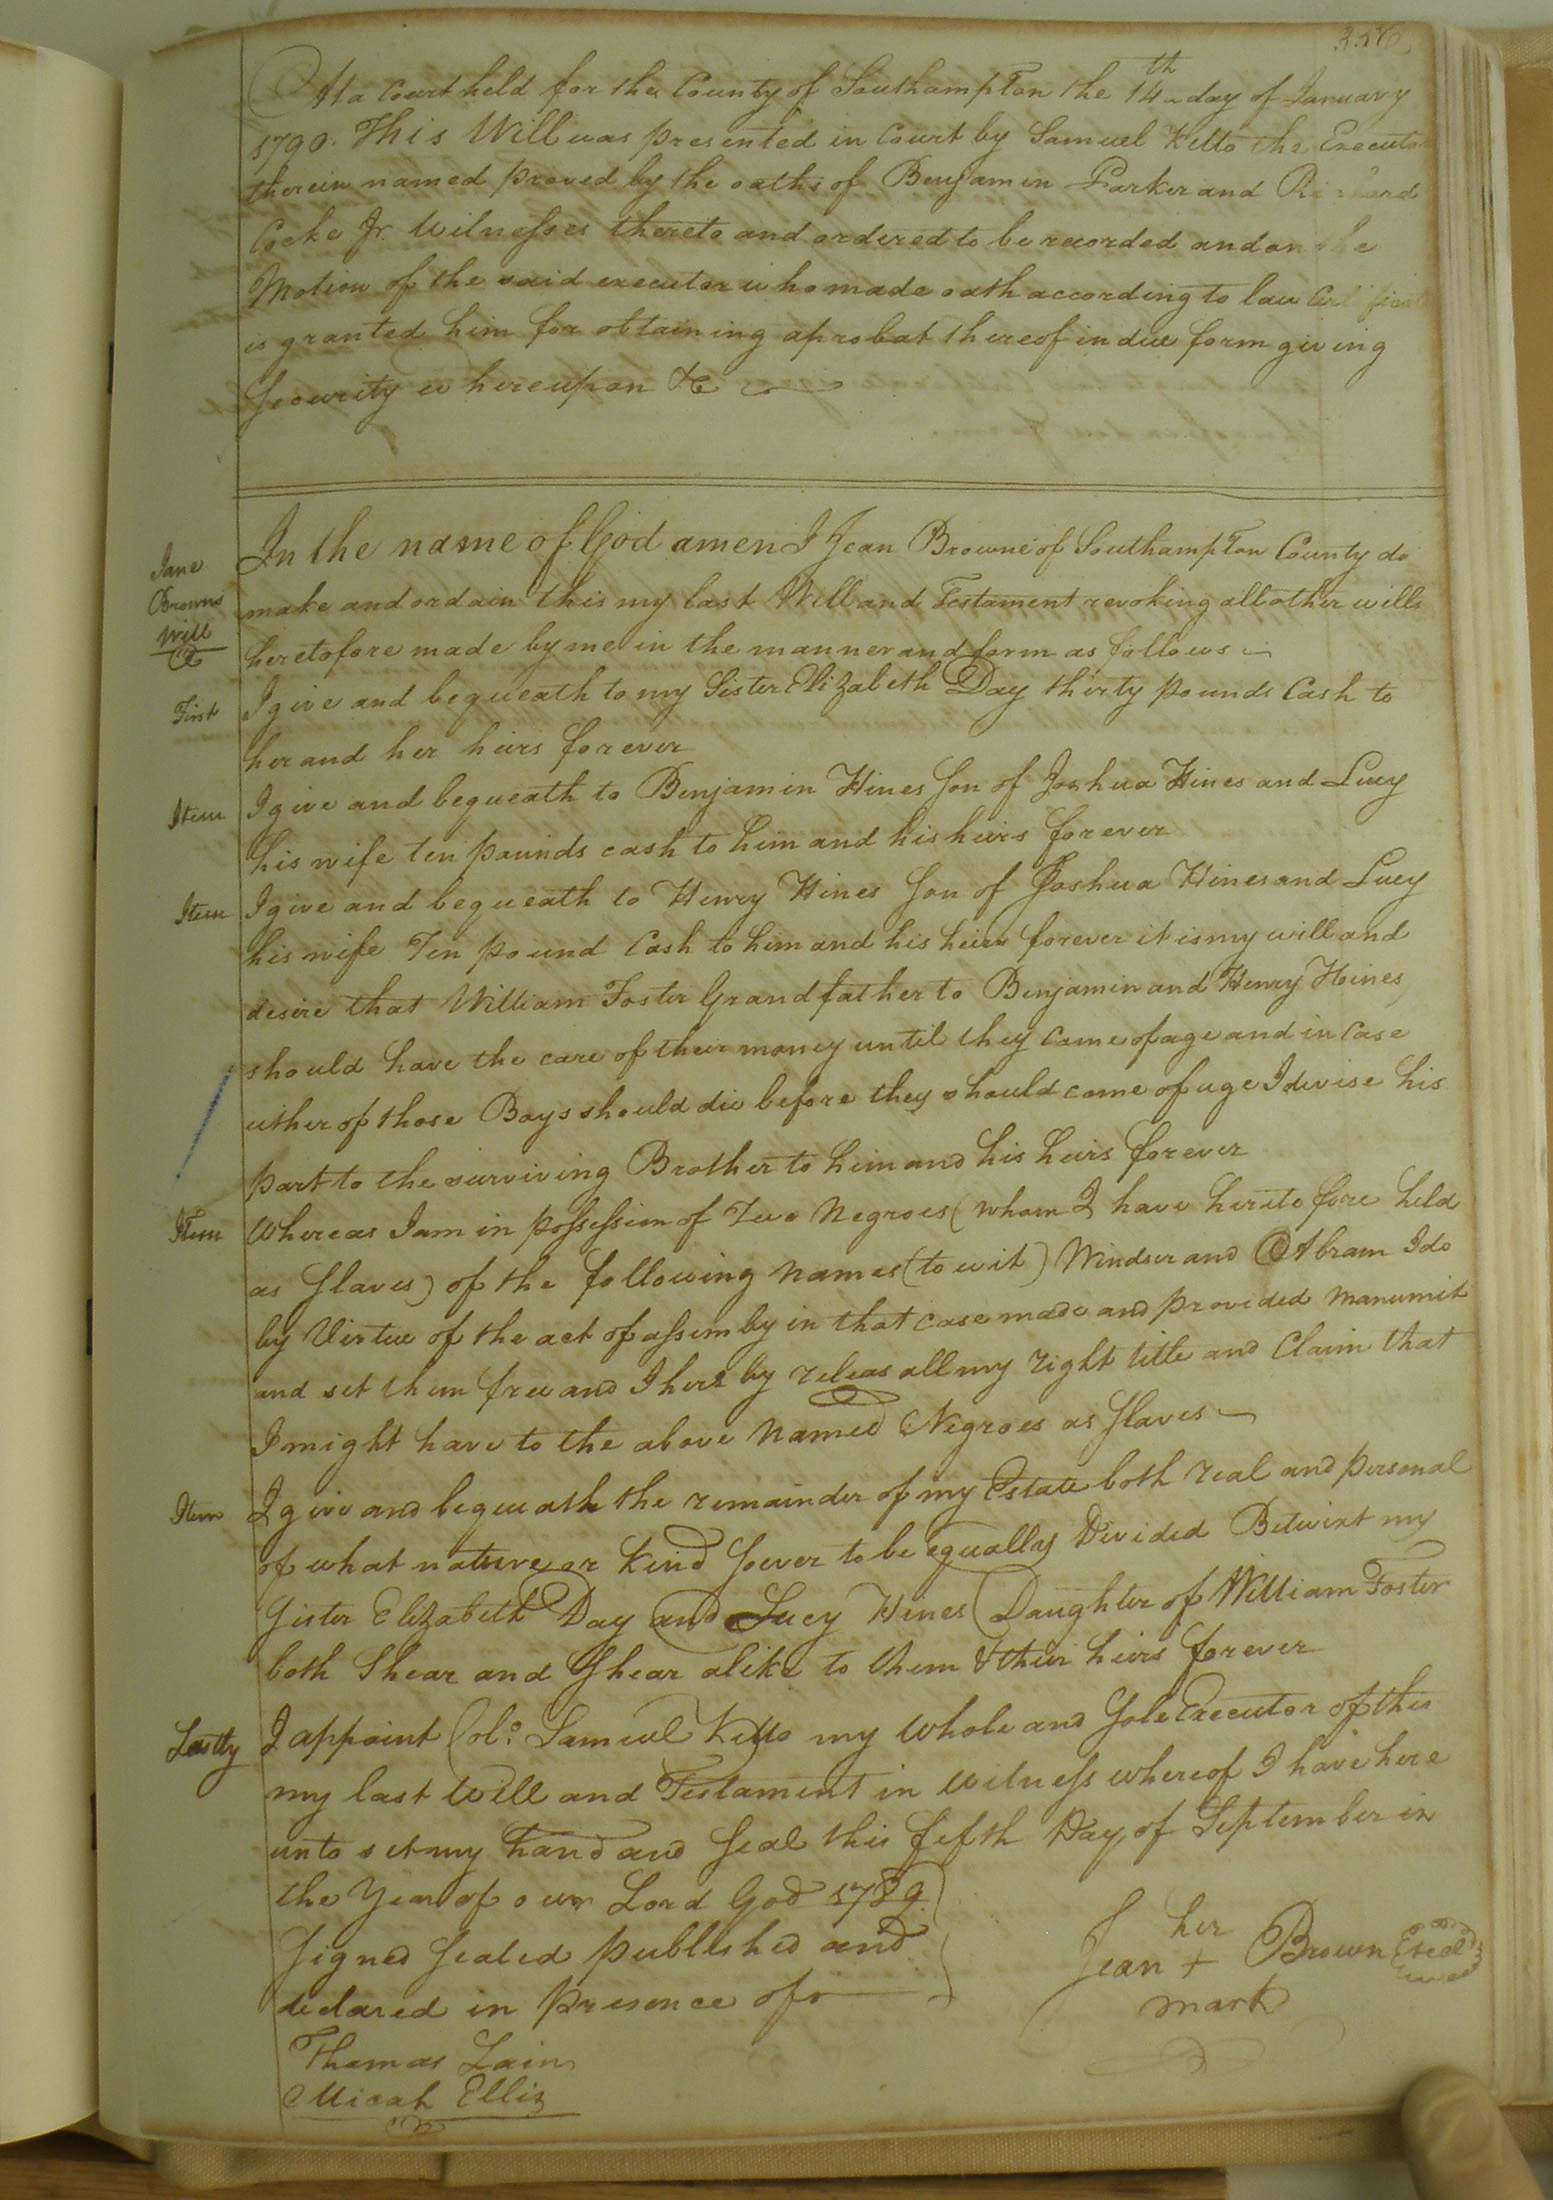 356
At a Court held for the County of Southampton the 14th day of January
1790. This Will was presented in Court by Samuel Kello the Executor
therein named proved by the oaths of Benjamin Parker and Richard
Cocke Jr. Witnesses thereto and ordered to be recorded and on the
Motion of the said executor who made oath according to law Certificate
is granted him for obtaining a probat thereof in due form giving
Security whereupon &c
Jane Browns Will
In the name of God amen I Jean Browne of Southampton County do
make and ordain this my last Will and Testament revoking all other wills
heretofore made by me in the manner and form as follows
First I give and bequeath to my Sister Elizabeth Day thirty pounds Cash to
her and her heirs forever
Item I give and bequeath to Benjamin Hines Son of Joshua Hines and Lucy
his wife ten pounds cash to him and his heirs forever
Item I give and bequeath to Henry Hines Son of Joshua Hines and Lucy
his wife Ten pound Cash to him and his heirs forever it is my will and
desire that William Foster Grandfather to Benjamin and Henry Hines
should have the care of their money until they came of age and in case
either of those Boys should die before they should come of age I devise his
part to the surviving Brother to him and his heirs forever
Item Whereas I am in possession of Two Negroes (whom I have heretofore held
as Slaves) of the following names (to wit) Windser and Abram I do
by Virtue of the act of assemby in that case made and provided manumit
and set them free and I hereby releas all my right title and Claim that
I might have to the above named Negroes as Slaves
Item I give and bequeath the remainder of my Estate both real and personal
of what nature or kind soever to be equally Divided Betwixt my
Sister Elizabeth Day and Lucy Hines Daughter of William Foster
both Shear and Shear alike to them & their heirs forever
Lastly I appoint Colo. Samuel Kello my whole and Sole Executor of this
my last Will and Testament in witness whereof I have here
unto set my hand and Seal this fifth Day of September in
the Year of our Lord God 1789
Signed Sealed published and
declared in presence of
her
Jean + Brown (Seal)
mark
Thomas Lain
Micah Ellis